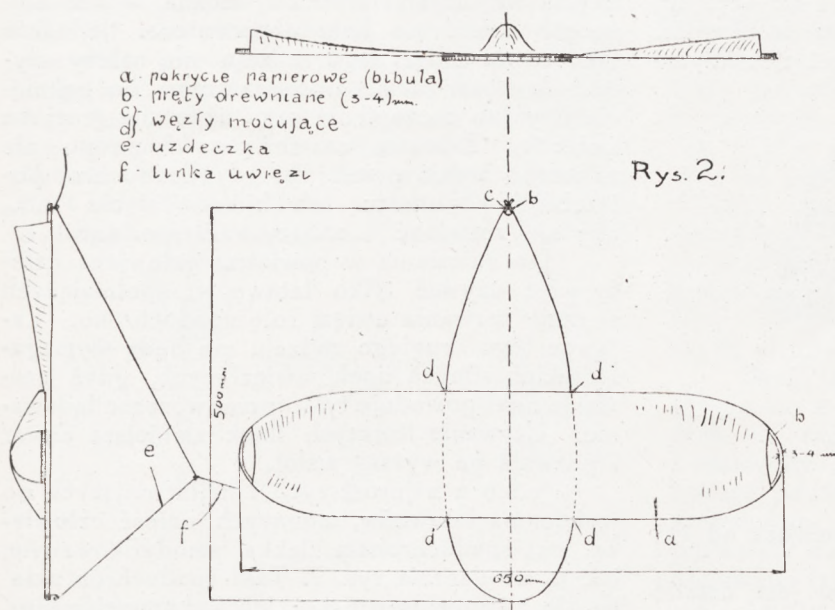 a - pokrycie papierowe (bibuła)
b pręty drewniane (3-4) mm.
c} węzły mocujące
d}
e - uzdeczka
f - linka uwięzi
Rys. 2.
c b
500 mm.
d d
b
3-4 mm
e
f
d d
a
650 mm.